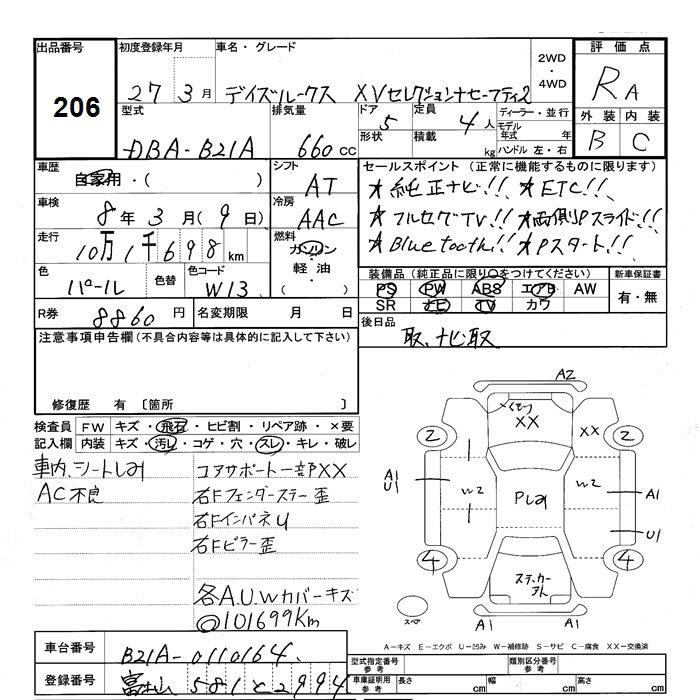 出品番号
206
初度登録年月
27 3月
車名・グレード
デイズルークス XVセレクション+セーフティ2
2WD
・
4WD
評価点
RA
外装 内装
B C
型式
DBA-B21A
排気量
660cc
ドア
5
形状
定員
4人
積載
kg
ディーラー・並行
モデル
年式 年
ハンドル 左・右
車歴
自家用・( )
シフト
AT
車検
8年3月(9日)
冷房
AAC
走行
10万1千698km
燃料
ガソリン
軽油・
( )
色
パール
色替
色コード
W13
R券
8860円
名変期限 月 日
セールスポイント(正常に機能するものに限ります)
★純正ナビ!! ★ETC!!
★フルセグTV!! ★両側Pスライド!!
★Bluetooth!! ★Pスタート!!
装備品(純正品に限り○をつけてください)
PS PW ABS エアB AW
SR ナビ TV カワ
新車保証書
有・無
後日品
取、ナビ取
注意事項申告欄(不具合内容等は具体的に記入して下さい)
修復歴 有 〔箇所 〕
検査員
記入欄
FW キズ・飛石・ヒビ割・リペア跡・×要
内装 キズ・汚レ・コゲ・穴・スレ・キレ・破レ
車内、シートしみ
AC不良
コアサポート一部XX
右Fフェンダーステー歪
右FインパネU
右Fピラー歪
各A.U.Wカバーキズ
◎101699Km
A2
XX
XX
2
2
A1
U1
W2
Pしみ
W2
A1
U1
4
4
ステッカー
スペア
A1
A1
A-キズ E-エクボ U-凹み W-補修跡 S-サビ C-腐食 XX-交換済
車台番号
B21A-0110164
登録番号
富士山 581 と 2994
型式指定番号
参考
類別区分番号
参考
車庫証明用
参考
長さ cm
幅 cm
高さ cm